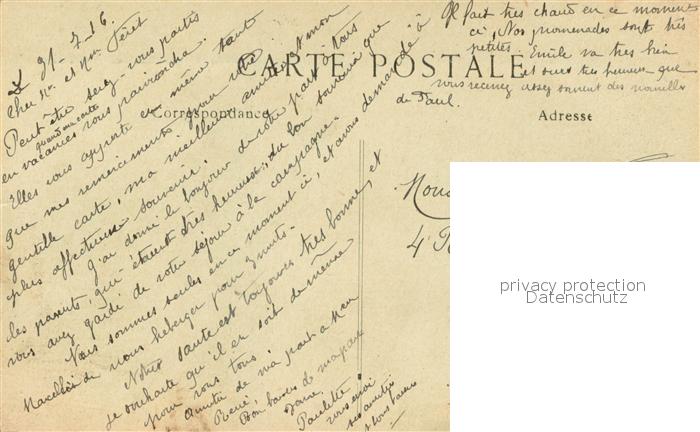 Le 31-7-16.
Cher Mr. et Mme Péret
Peut-être serez-vous partis
en vacances quand ma carte vous parviendra.
Elles vous apporte en même temps
que mes remerciements pour votre
gentille carte, ma meilleure amitié et mon
plus affectueux souvenir.
J'ai donné le bonjour de votre part à tous
les parents, qui étaient très heureux, du bon souvenir que
vous avez gardé de votre séjour à la campagne.
Nous sommes seules en ce moment ici, et avons demandé à
de nous héberger pour 2 nuits.
Notre santé est toujours très bonne, et
je souhaite qu'il en soit de même
pour vous tous
Amitié de ma part à
René,
Bon baiser de ma part
Paulette
vous envoi
ses amitiés
CARTE POSTALE
Correspondance
Adresse
Il fait très chaud en ce moment
ici, Nos promenades sont très
petites. Emile va très bien
et suis très heureux que
vous receviez assez souvent des nouvelles
de Paul.
4 R
privacy protection
Datenschutz